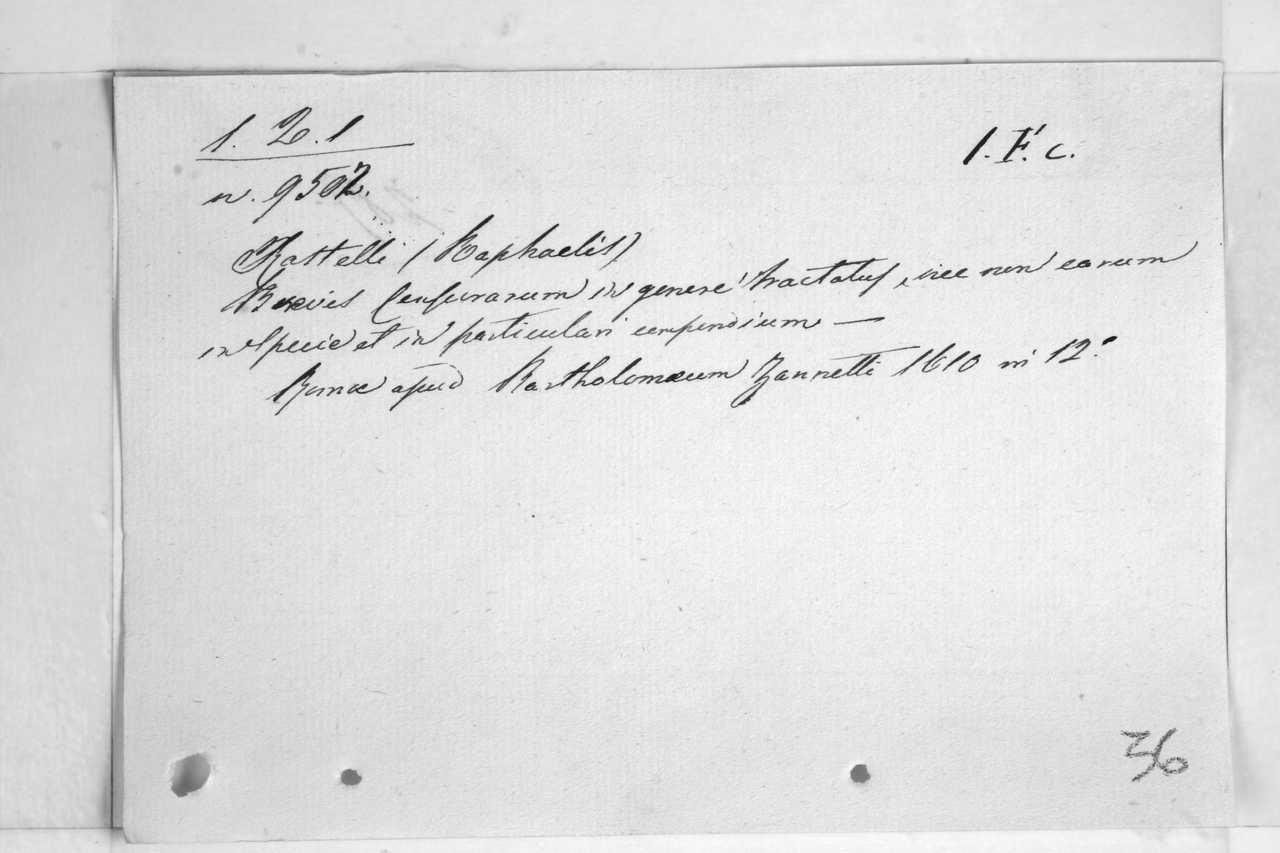 1. Z. 1
1. F. c.
n. 9502.
Rastelli (Raphaelis)
Brevis Censurarum in genere tractatus, nec non earum
in Specie et in particulari compendium —
Romæ apud Bartholomæum Zannetti 1610 in 12.º
36